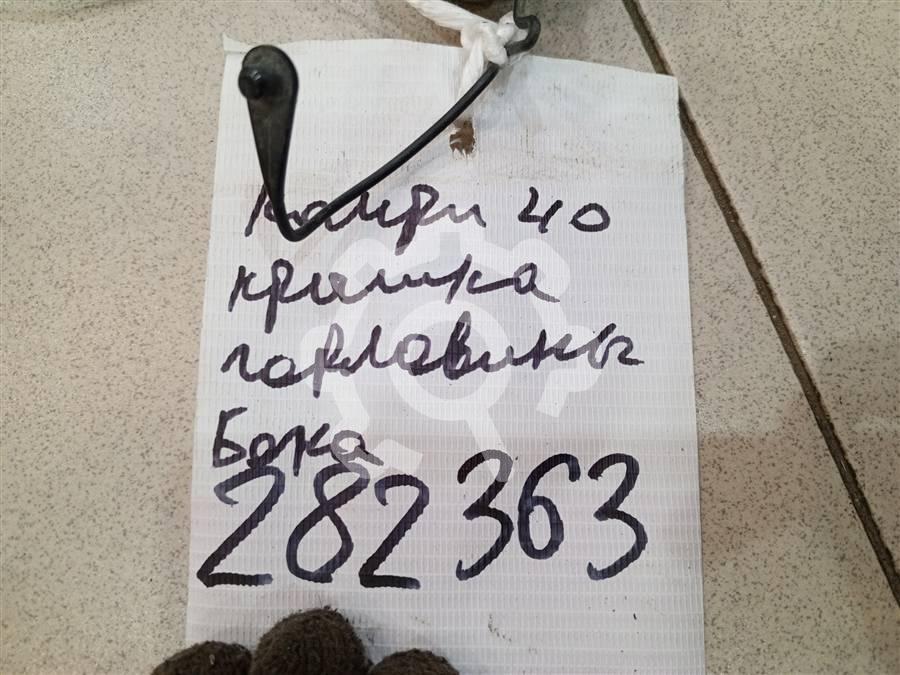 камри 40
крышка
горловины
бака
282363